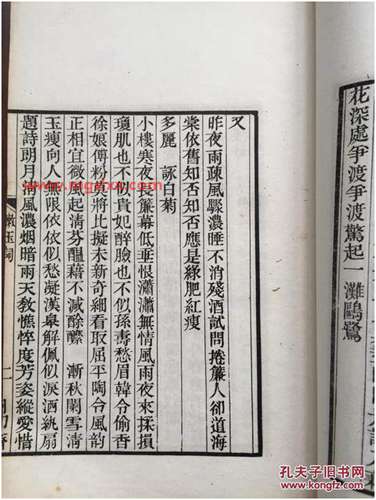 花深處爭渡爭渡驚起一灘鷗鷺
又
昨夜雨疏風驟濃睡不消殘酒試問捲簾人卻道海
棠依舊知否知否應是綠肥紅瘦
多麗 詠白菊
小樓寒夜長簾幕低垂恨瀟瀟無情風雨夜來揉損
瓊肌也不似貴妃醉臉也不似孫壽愁眉韓令偷香
徐娘傅粉莫將比擬未新奇細看取屈平陶令風韻
正相宜微風起清芬醞藉不減酴醾 漸秋闌雪清
玉瘦向人無限依依似愁凝漢皐解佩似淚洒紈扇
題詩明月清風濃烟暗雨天教憔悴度芳姿縱愛惜
漱玉詞
二
孔夫子旧书网